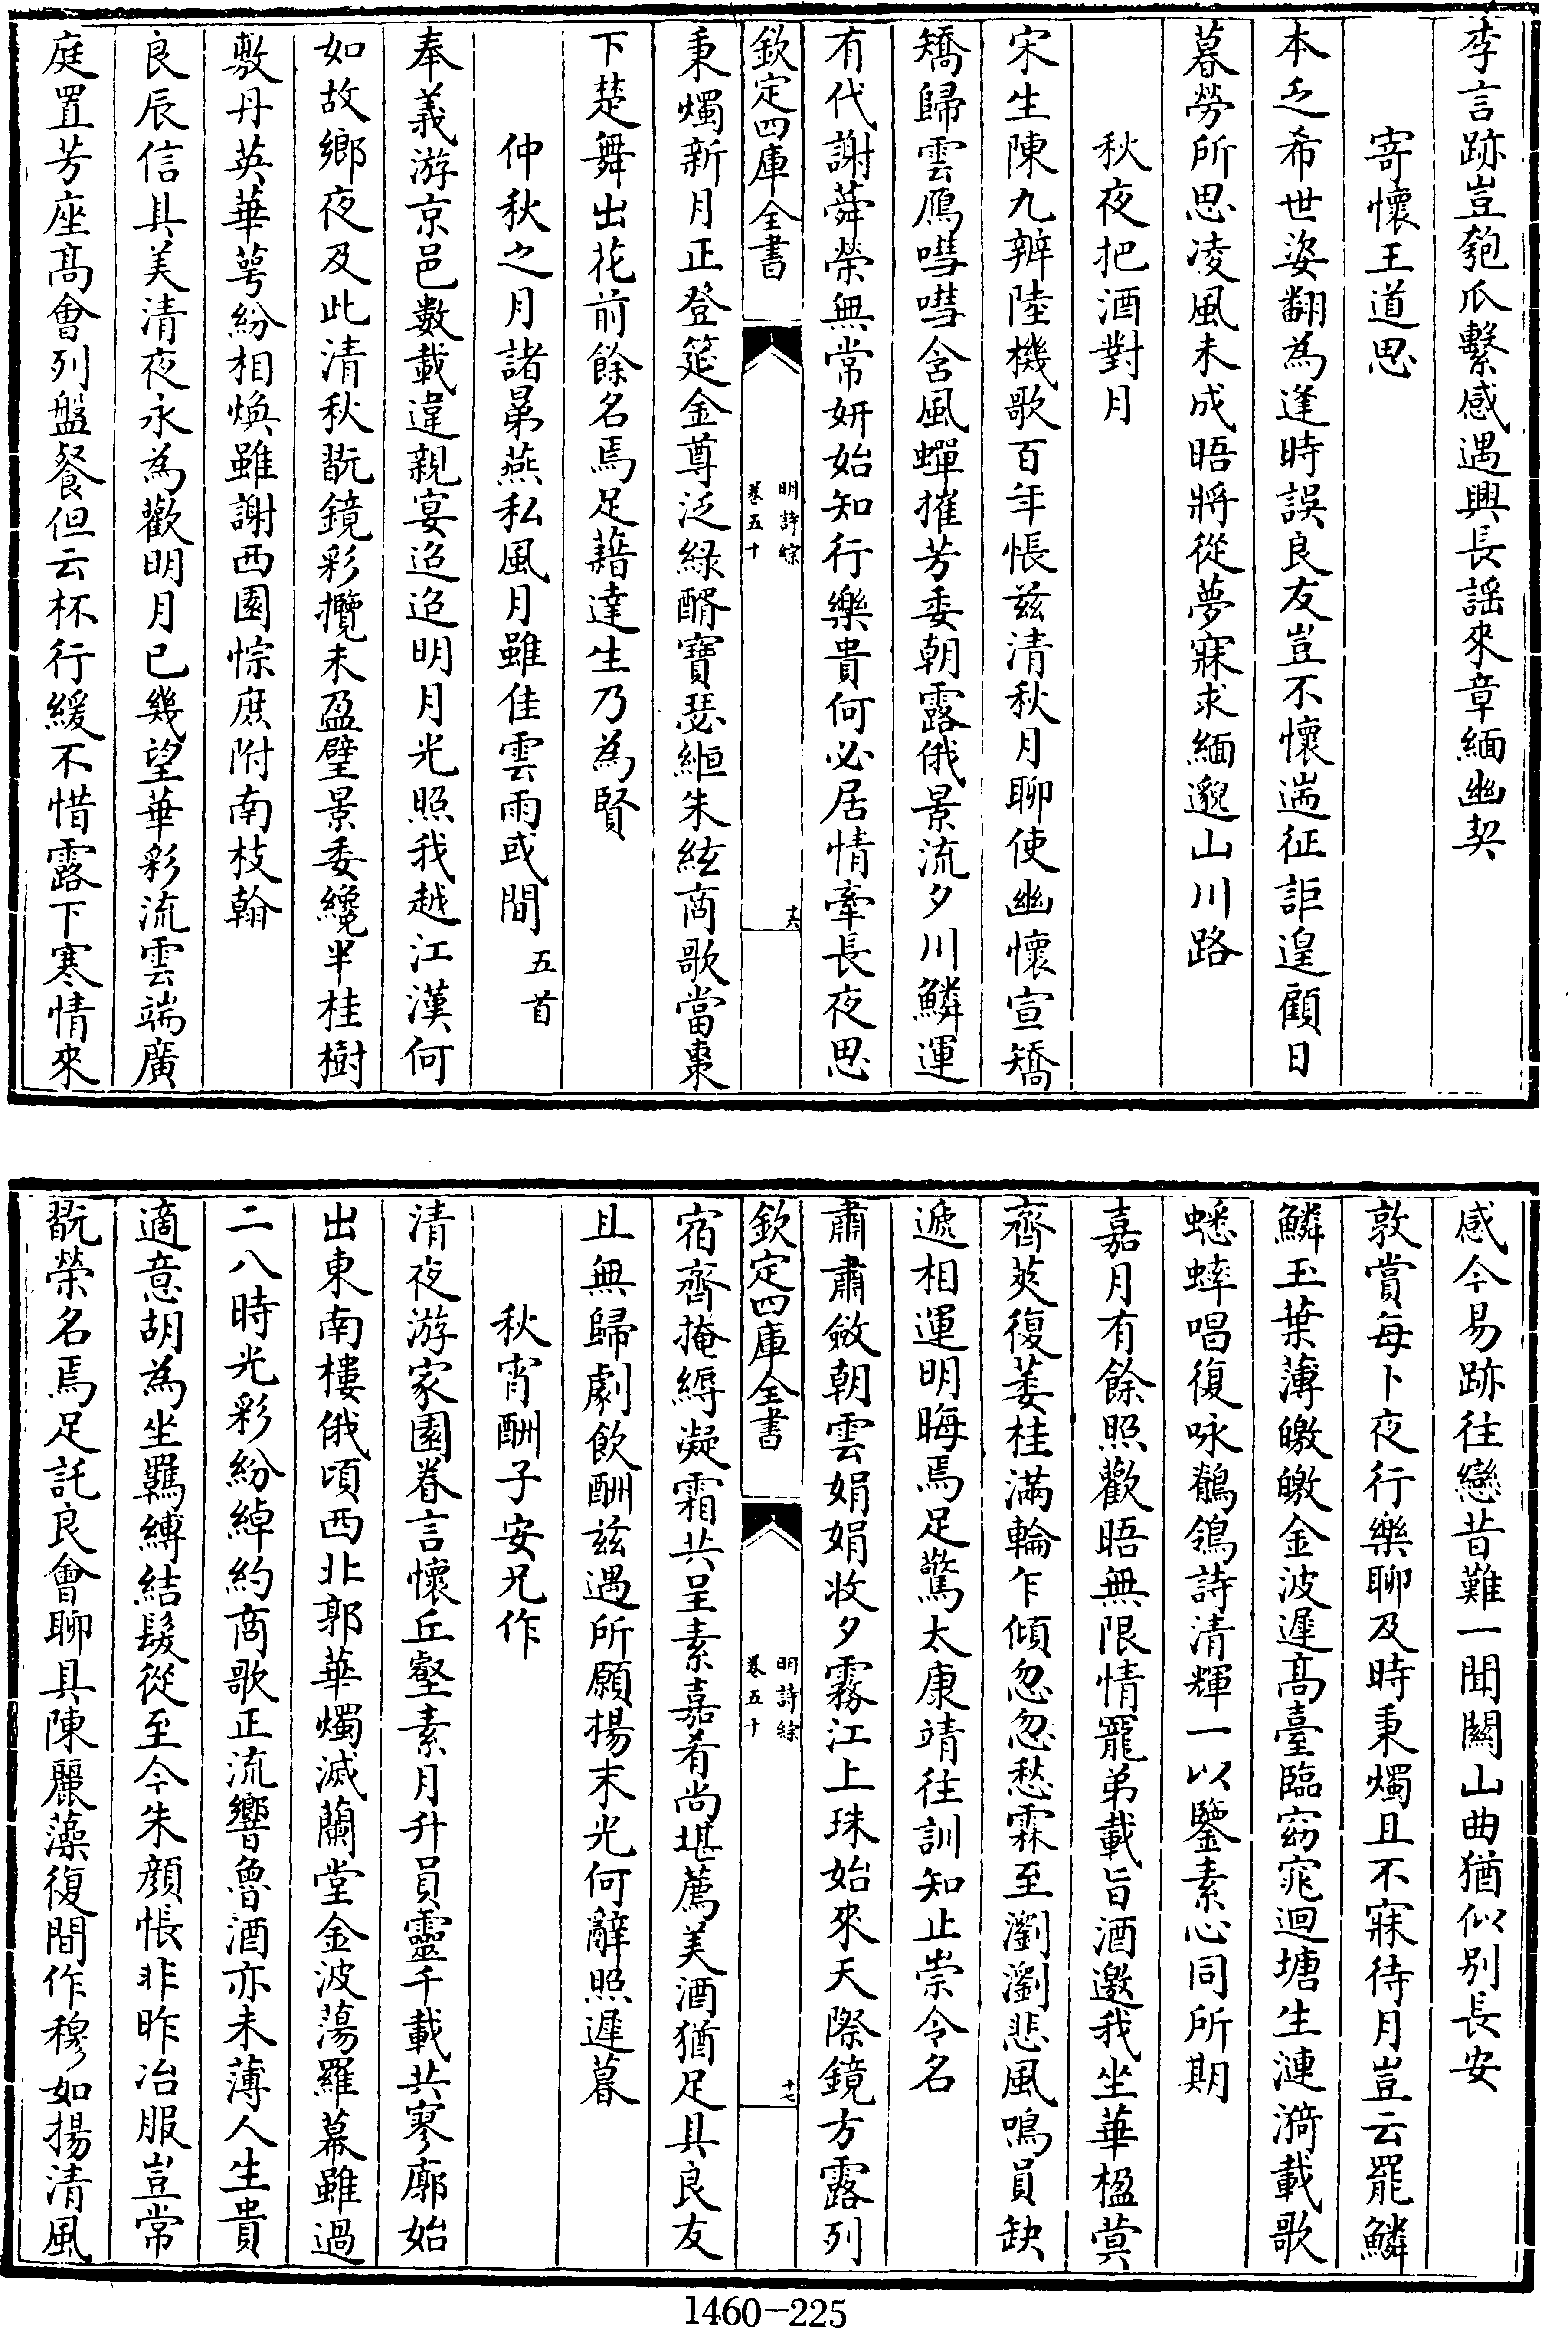 李言跡豈匏爪繫感遇興長謡來章緬幽契
寄懷王道思
本乏希世姿翻為逢時誤良友豈不懷遄征詎遑顧日
暮勞所思凌風未成晤將從夢寐求緬邈山川路
秋夜把酒對月
宋生陳九辨陸機歌百年悵兹清秋月聊使幽懷宣矯
矯歸雲鴈嘒嘒含風蟬摧芳委朝露俄景流夕川鱗運
有代謝蕣榮無常妍始知行樂貴何必居情牽長夜思
欽定四庫全書
明詩綜
卷五十
十六
秉燭新月正登筵金尊泛緑醑寶瑟縆朱絃商歌當棗
下楚舞出花前餘名焉足藉達生乃為賢
仲秋之月諸弟燕私風月雖佳雲雨或間五首
奉義游京邑數載違親宴迢迢明月光照我越江漢何
如故鄉夜及此清秋翫鏡彩攬未盈璧景委纔半桂樹
敷丹英華萼紛相煥雖謝西園悰庶附南枝翰
良辰信具美清夜永為歡明月已幾望華彩流雲端廣
庭置芳座髙會列盤餐但云杯行緩不惜露下寒情來
感今易跡往戀昔難一聞關山曲猶似别長安
敦賞每卜夜行樂聊及時秉燭且不寐待月豈云罷鱗
鱗玉葉薄皦皦金波遲髙臺臨窈窕迴塘生漣漪載歌
蟋蟀唱復咏鶺鴒詩清輝一以鑒素心同所期
嘉月有餘照歡晤無限情寵弟載旨酒邀我坐華楹蓂
齊莢復萎桂滿輪乍傾忽忽愁霖至瀏瀏悲風鳴員缺
遞相運明晦焉足驚太康靖往訓知止崇令名
肅肅斂朝雲娟娟收夕霧江上珠始來天際鏡方露列
欽定四庫全書
明詩綜
卷五十
十七
宿齊掩縟凝霜共呈素嘉肴尚堪薦美酒猶足具良友
且無歸劇飲酬兹遇所願揚末光何辭照遲暮
秋宵酬子安兄作
清夜游家園眷言懷丘壑素月升員靈千載共寥廓始
出東南樓俄頃西北郭華燭滅蘭堂金波蕩羅幕雖過
二八時光彩紛綽約商歌正流響魯酒亦未薄人生貴
適意胡為坐羈縛結髮從至今朱顔悵非昨冶服豈常
翫榮名焉足託良會聊具陳麗藻復間作穆如揚清風
1460-225